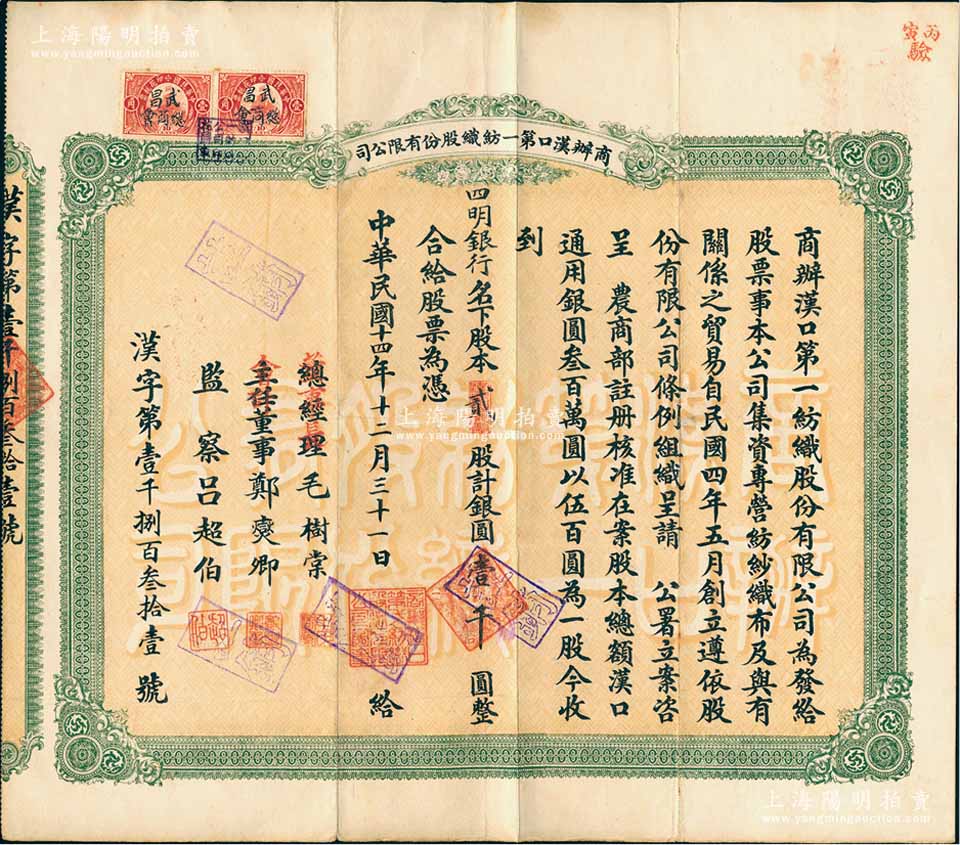 上海陽明拍賣
www.yangmingauction.com
丙寅驗
武昌
總商會
武昌
總商會
商辦漢口第一紡織股份有限公司
商辦漢口第一紡織股份有限公司為發給
股票事本公司集資專營紡紗織布及與有
關係之貿易自民國四年五月創立遵依股
份有限公司條例組織呈請 公署立案咨
呈 農商部註册核准在案股本總額漢口
通用銀圓叁百萬圓以伍百圓為一股今收
到
四明銀行名下股本 貳 股計銀圓 壹千 圓整
合給股票為憑
中華民國十四年十二月三十一日 給
總經理毛樹棠
主任董事鄭燮卿
監察呂超伯
漢字第壹千捌百叁拾壹號
漢字第壹千捌百叁拾壹號
上海陽明拍賣
www.yangmingauction.com
上海陽明拍賣
www.yangmingauction.com